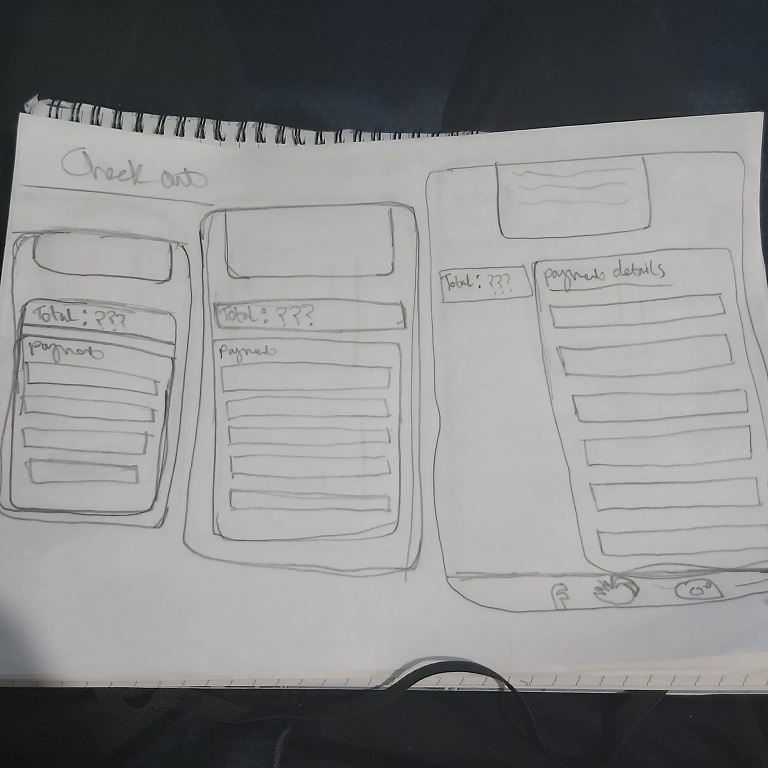 Check out
Total : ???
Payment
Total : ???
Payment
Total : ???
payment details